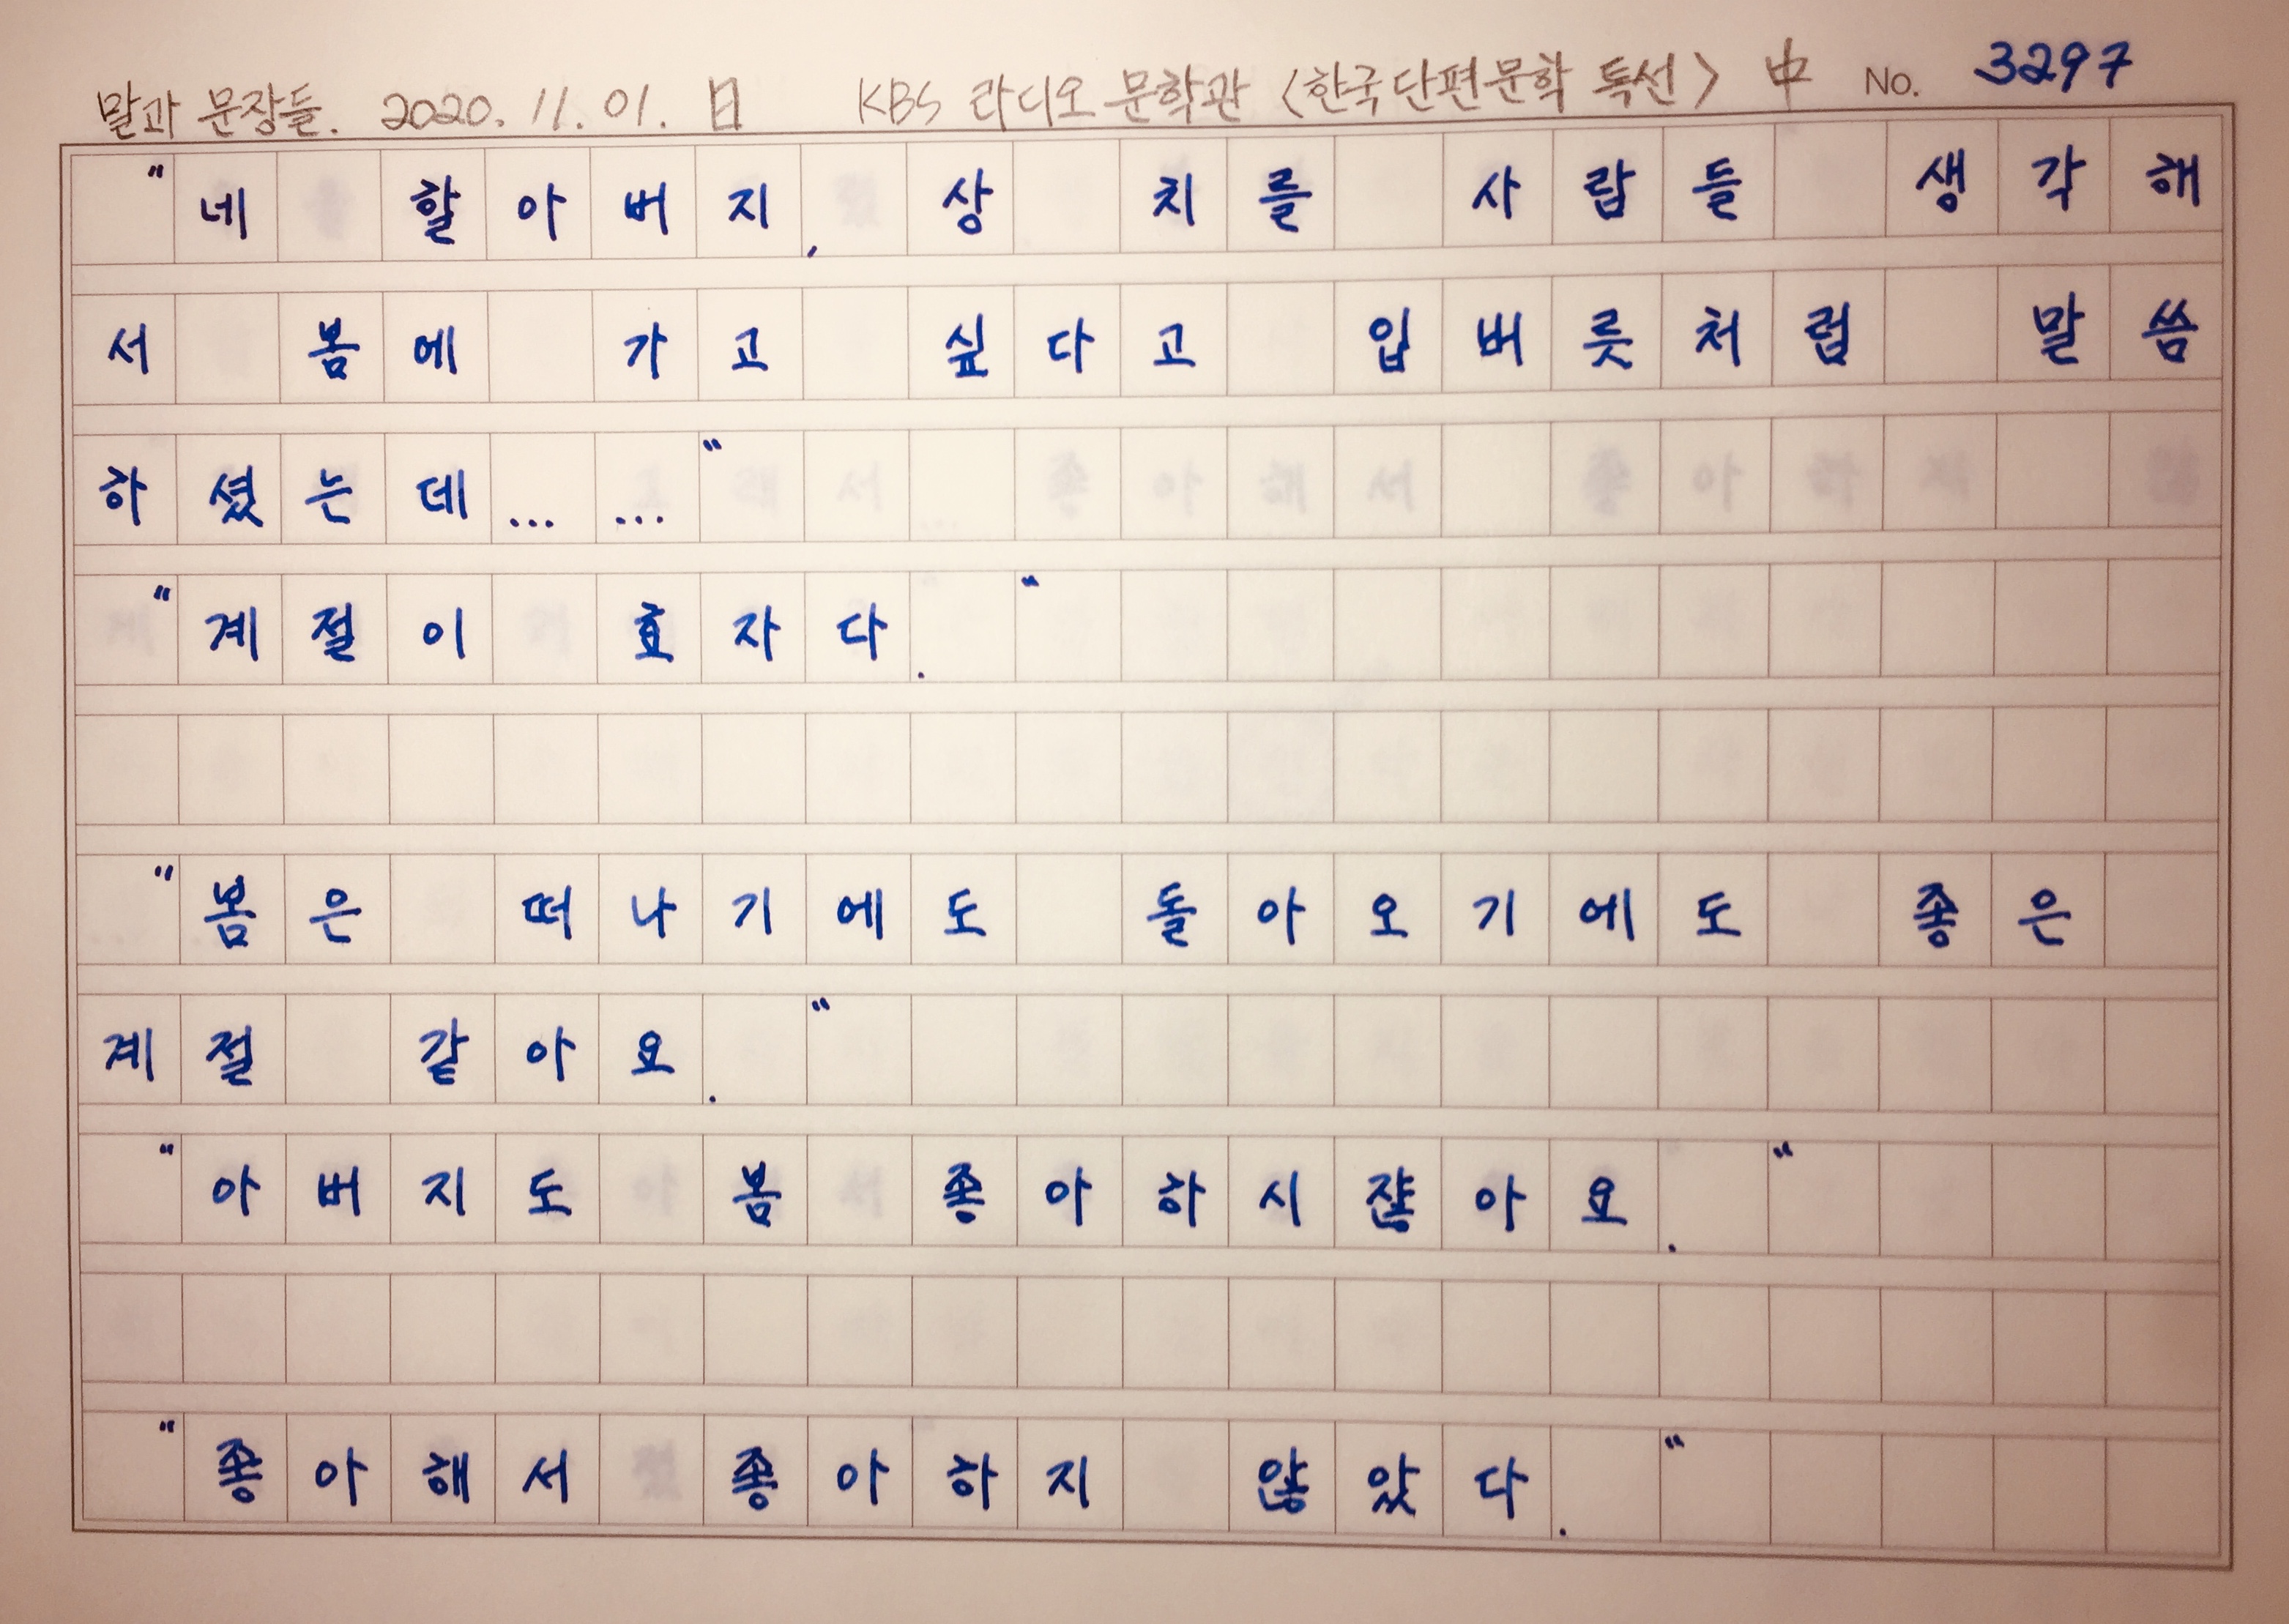 말과 문장들. 2020. 11. 01. 日 KBS 라디오 문학관 〈한국단편문학 특선〉 中 No. 3297
"네 할아버지, 상 치를 사람들 생각해
서 봄에 가고 싶다고 입버릇처럼 말씀
하셨는데……"
"계절이 효자다."
"봄은 떠나기에도 돌아오기에도 좋은
계절 같아요."
"아버지도 봄 좋아하시잖아요."
"좋아해서 좋아하지 않았다."